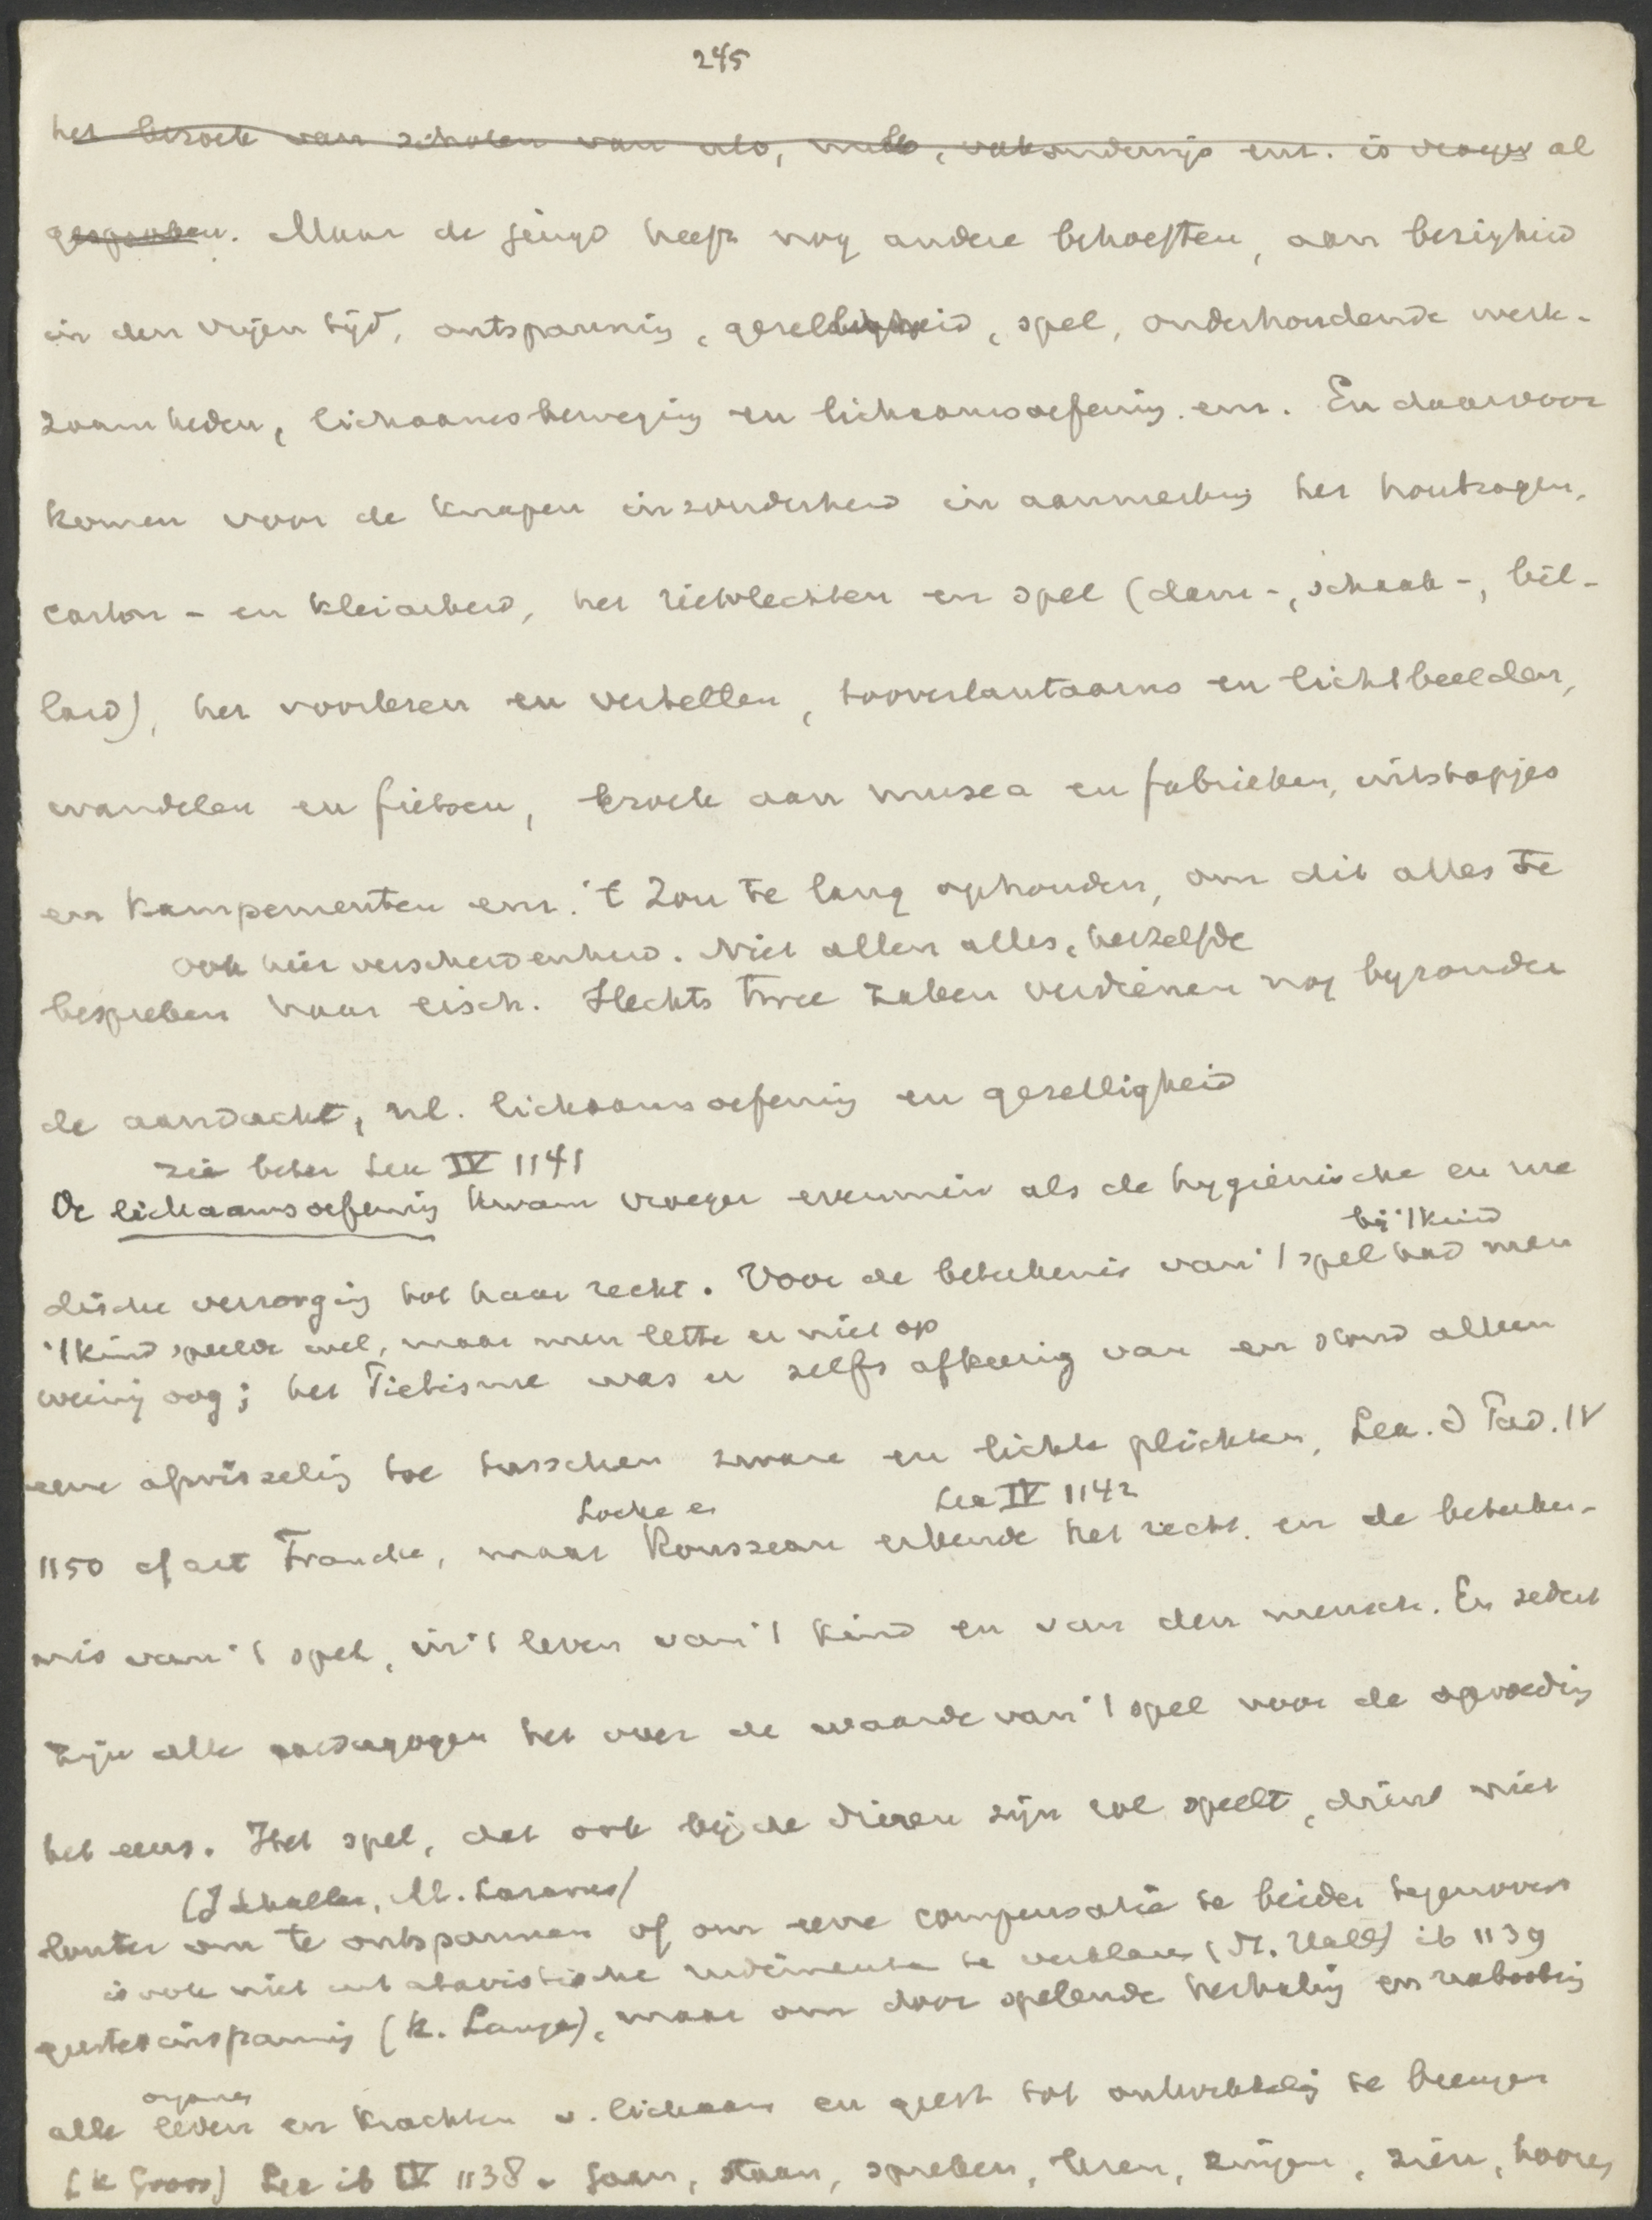 245
het bezoek van scholen van ulo, mulo, vakonderwijs enz. is vroeger al
gesproken. Maar de jeugd heeft nog andere behoeften, aan bezigheid
in den vrijen tijd, ontspanning, gezelligheid, spel, onderhoudende werk-
zaamheden, lichaamsbeweging en lichaamsoefening enz. En daarvoor
komen voor de knapen inzonderheid in aanmerking het houtzagen,
carton- en kleiarbeid, het rietvlechten en spel (dam-, schaak-, bil-
lard), het voorlezen en vertellen, tooverlantaarns en lichtbeelden,
wandelen en fietsen, bezoek aan musea en fabrieken, uitstapjes
en kampementen enz. 't Zou te lang ophouden, om dit alles te
ook hier verscheidenheid. Niet allen alles, hetzelfde
bespreken naar eisch. Slechts twee zaken verdienen nog byzonder
de aandacht, nl. lichaamsoefening en gezelligheid
zie beter Lex IV 1141
De lichaamsoefening kwam vroeger evenmin als de hygiënische en me
bij 't kind
dische verzorging tot haar recht. Voor de betekenis van 't spel had men
't kind speelde wel, maar men lette er niet op
weinig oog; het Piëtisme was er zelfs afkeerig van en stond alleen
eene afwisseling toe tusschen zware en lichte plichten, Lex. d Päd. IV
Locke en
Lex IV 1142
1150 cf art Francke, maar Rousseau erkende het recht en de beteeke-
nis van 't spel, in 't leven van 't kind en van den mensch. En sedert
zijn alle paedagogen het over de waarde van 't spel voor de opvoeding
het eens. Het spel, dat ook bij de dieren zijn rol speelt, dient niet
(J Schaller, M. Lazarus)
louter om te ontspannen of om eene compensatie te bieden tegenover
is ook niet uit atavistische rudimenten te verklaren (St. Hall) ib 1139
geestesinspanning (K. Lange), maar om door spelende herhaling en nabootsing
organen
alle leden en krachten v. lichaam en geest tot ontwikkeling te brengen
(K Groos) Lex ib IV 1138. Gaan, staan, spreken, lezen, zingen, zien, hooren,